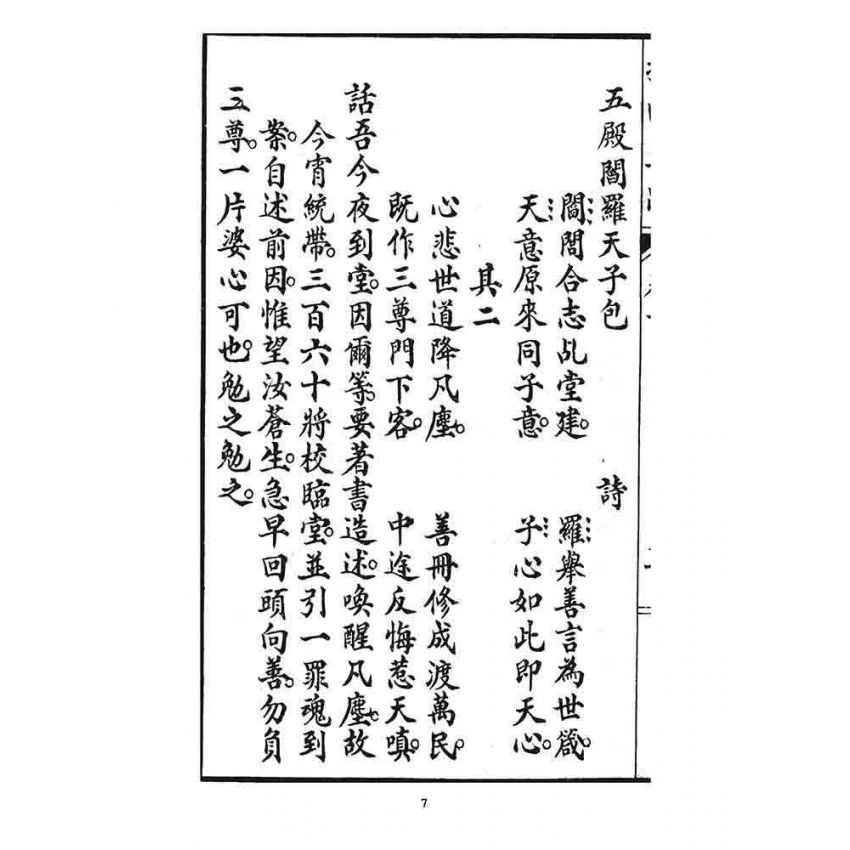 五殿閻羅天子包　詩
閻閭合志乩堂建。　羅舉善言為世箴。
天意原來同子意。　子心如此即天心。
其二
心悲世道降凡塵。　善冊修成渡萬民。
既作三尊門下客。　中途反悔惹天嗔。
話吾今夜到堂。因爾等。要著書造述。喚醒凡塵。故
今宵統帶。三百六十將校臨堂。並引一罪魂到
案。自述前因。惟望汝蒼生。急早回頭向善。勿負
三尊。一片婆心可也。勉之勉之。
7